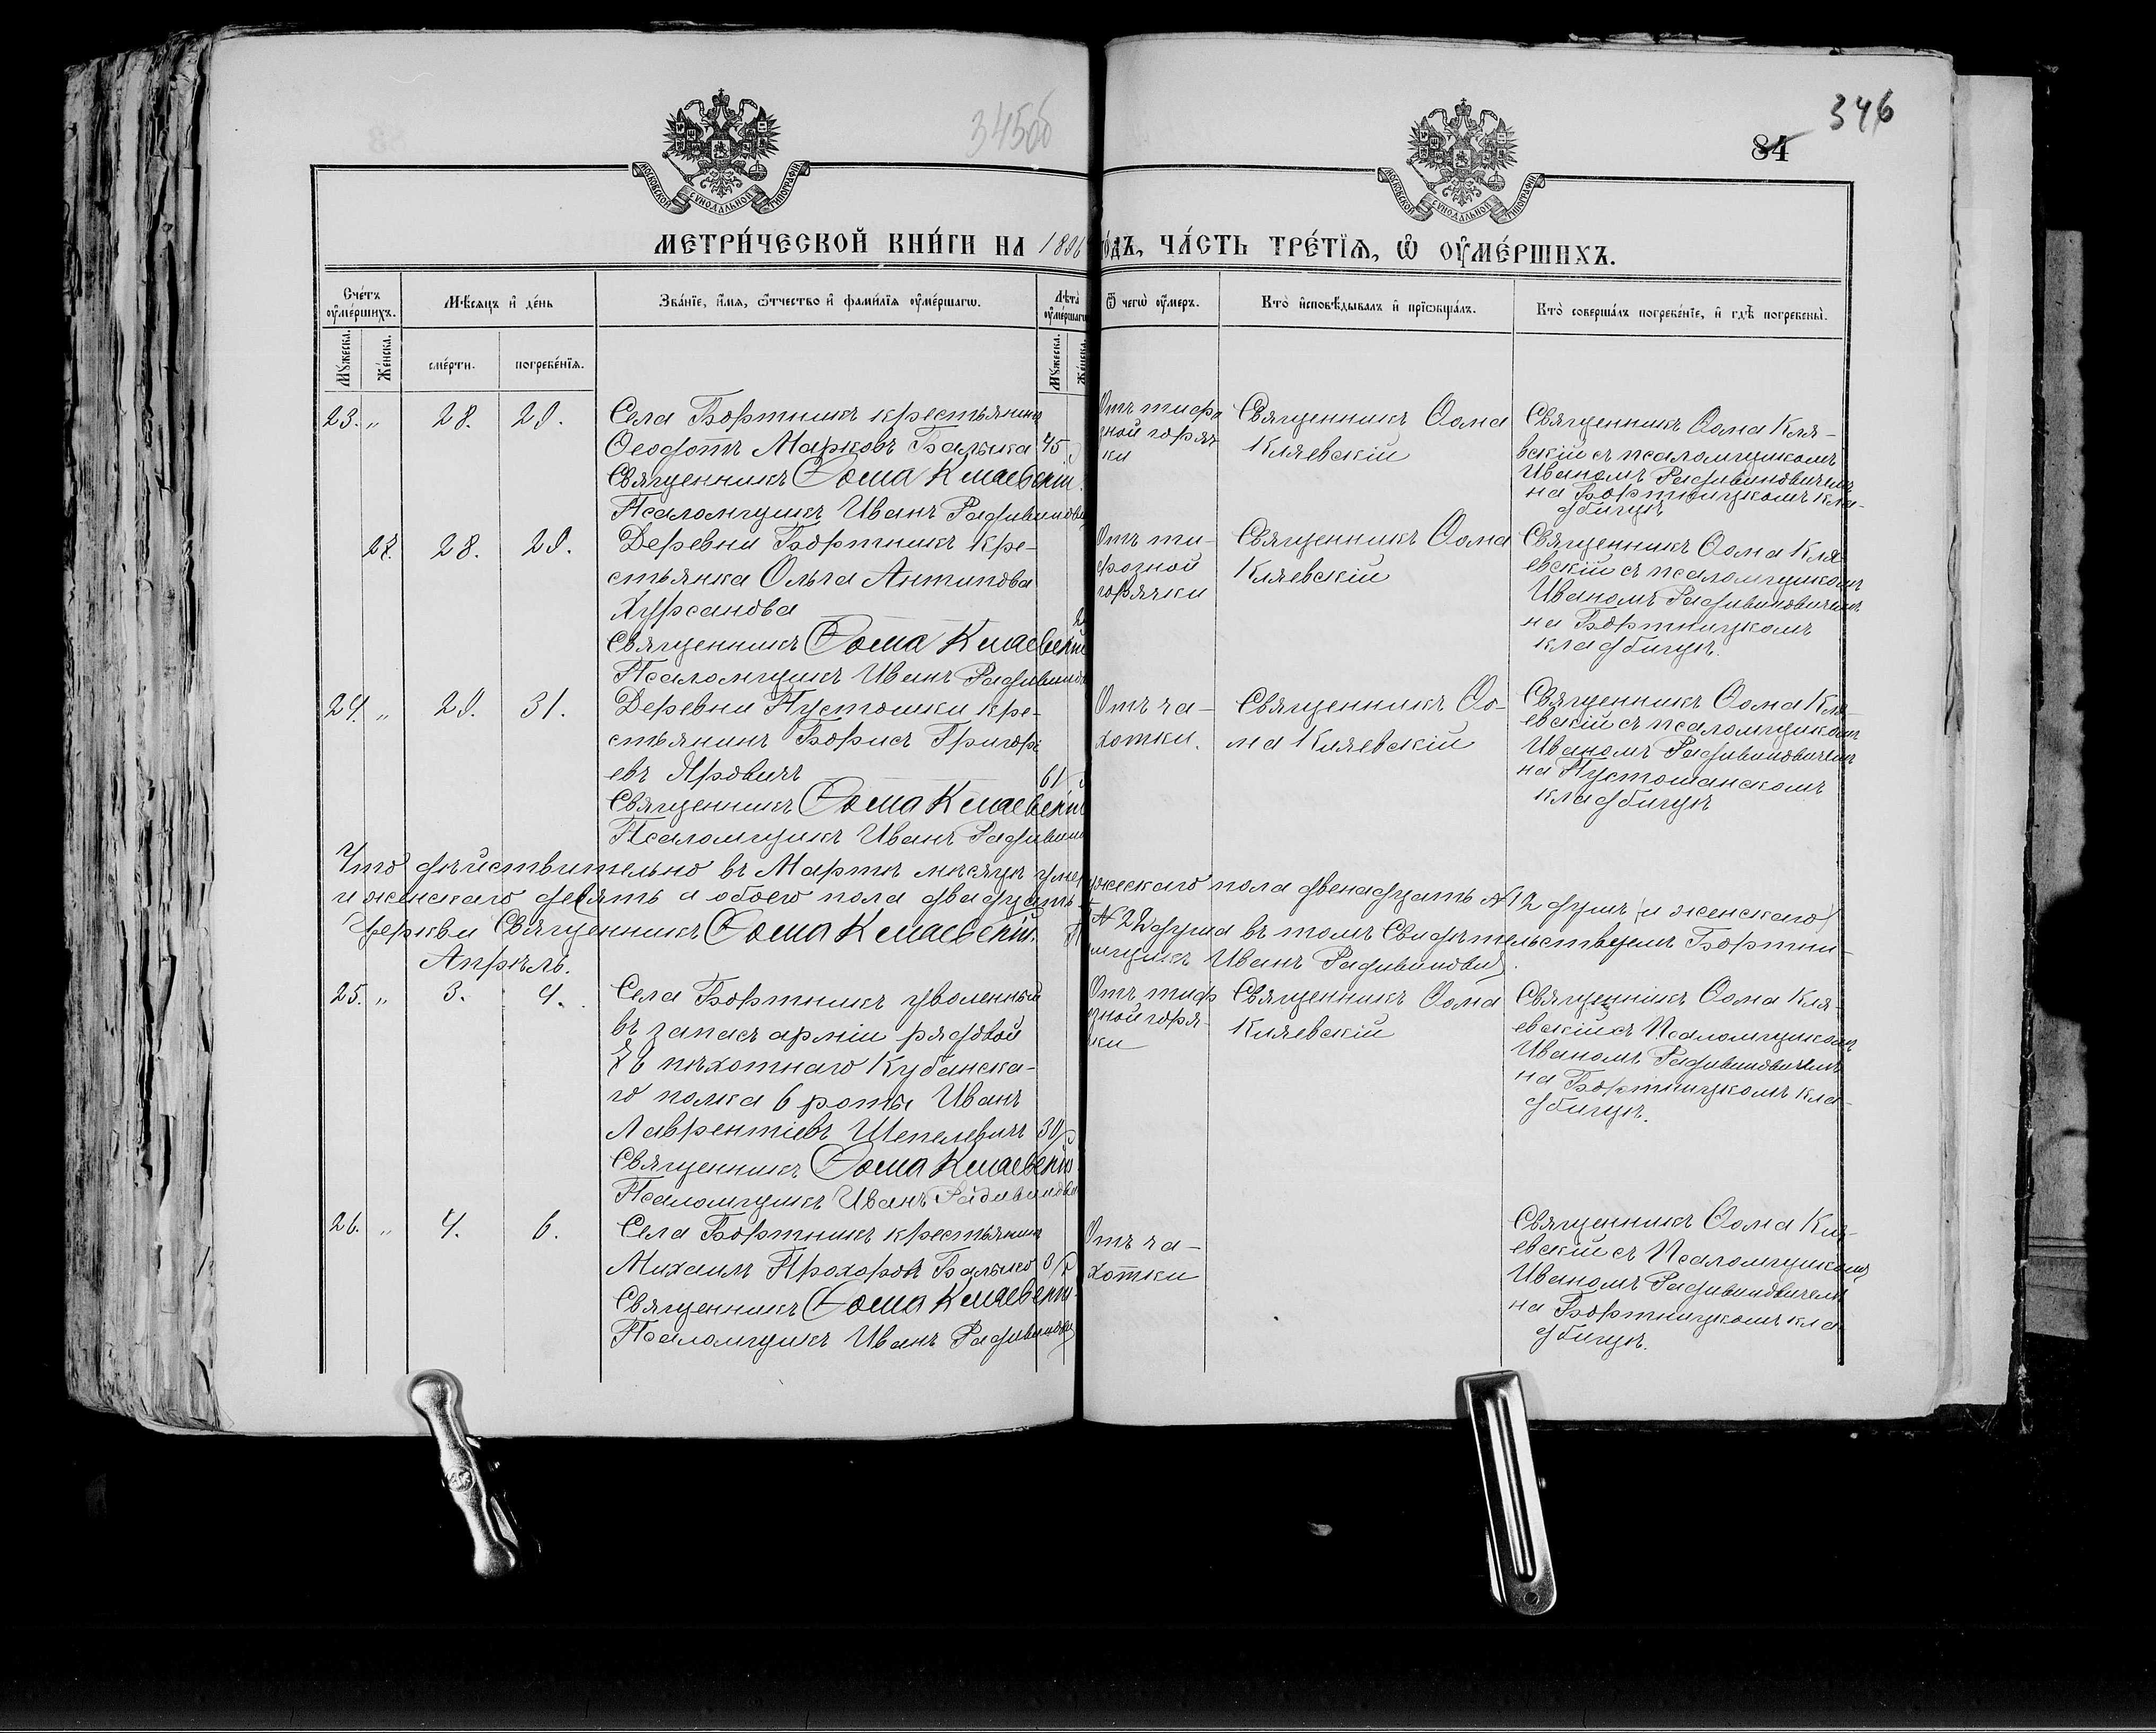 345об
346
84
МОСКОВСКОЙ СѴНОДАЛЬНОЙ ТИПОГРАФІИ
МОСКОВСКОЙ СѴНОДАЛЬНОЙ ТИПОГРАФІИ
МЕТРИ́ЧЕСКОЙ КНИ́ГИ НА 1896
го́дъ, ЧА́СТЬ ТРЕ́ТЇѦ, Ѡ ОУ҆МЕ́РШИХЪ.
Сче́тъ оу҆ме́ршихъ.
Мѣ́сяцъ и҆ де́нь
Зва́нїе, и҆́мѧ, ѻ҆́тчество и҆ фами́лїѧ оу҆ме́ршагѡ.
Лѣта̀ оу҆ме́ршагѡ
Ѿ чегѡ̀ оу҆́меръ.
Кто̀ и҆сповѣ́дывалъ и҆ прїѡбща́лъ.
Кто̀ соверша́лъ погребе́нїе, и҆ гдѣ̀ погребены̀.
Мꙋ́жеска.
Же́нска.
сме́рти.
погребе́нїѧ.
Мꙋ́жеска.
Же́нска.
23. „ 28. 29.
Села Бортникъ крестьянинъ
Ѳеодотъ Марковъ Балыка 45
Священникъ Ѳома Кляевскій.
Псаломщикъ Иванъ Радивинови
Отъ тифо
зной горяч
ки
Священникъ Ѳома
Кляевскій
Священникъ Ѳома Кля-
евскій съ псаломщикомъ
Иваномъ Радивиновичемъ
на Бортницкомъ кла-
дбищѣ
28. 29.
Деревни Бортникъ кре-
стьянка Ольга Антипова
Хурсанова
Священникъ Ѳома Кляевскій
Псаломщикъ Иванъ Радивино
Отъ ти-
фозной
горячки
Священникъ Ѳома
Кляевскій
Священникъ Ѳома Кля-
евскій съ псаломщикомъ
Иваномъ Радивиновичемъ
на Бортницкомъ
кладбищѣ.
24. „ 29. 31.
Деревни Пустошки кре-
стьянинъ Борисъ Григорі
евъ Яровичъ 61
Священникъ Ѳома Кляевскій
Псаломщикъ Иванъ Радивин
Отъ ча-
хотки.
Священникъ Ѳо-
ма Кляевскій
Священникъ Ѳома Кля-
евскій съ псаломщикомъ
Иваномъ Радивиновичемъ
на Пустошанскомъ
кладбищѣ
Что дѣйствительно въ Мартѣ мѣсяцѣ умер
жескаго пола двенадцать № 12 душъ (и женскаго)
и женскаго девять а обоего пола двадцать
№ 22 душа въ томъ Свидѣтельствуемъ Бортни-
Церкви Священникъ Ѳома Кляевскій.
мщикъ Иванъ Радивиновичъ.
Апрѣль.
25. „ 3. 4.
Села Бортникъ уволенный
въ запасъ арміи рядовой
пѣхотнаго Кубанска-
го полка 6 роты Иванъ
Лаврентіевъ Шепелевичъ 30
Священникъ Ѳома Кляевскій
Псаломщикъ Иванъ Радивинови
Отъ тиф
зной горя-
чки
Священникъ Ѳома
Кляевскій
Священникъ Ѳома Кля-
евскій съ Псаломщикомъ
Иваномъ Радивиновичемъ
на Бортницкомъ кла-
дбищѣ.
26. „ 4. 6.
Села Бортникъ крестьянинъ
Михаилъ Прохоровъ Балыко
Священникъ Ѳома Кляевскій
Псаломщикъ Иванъ Радивинови
Отъ ча-
хотки
Священникъ Ѳома Кля-
евскій съ Псаломщикомъ
Иваномъ Радивиновичемъ
на Бортницкомъ кла-
дбищѣ.